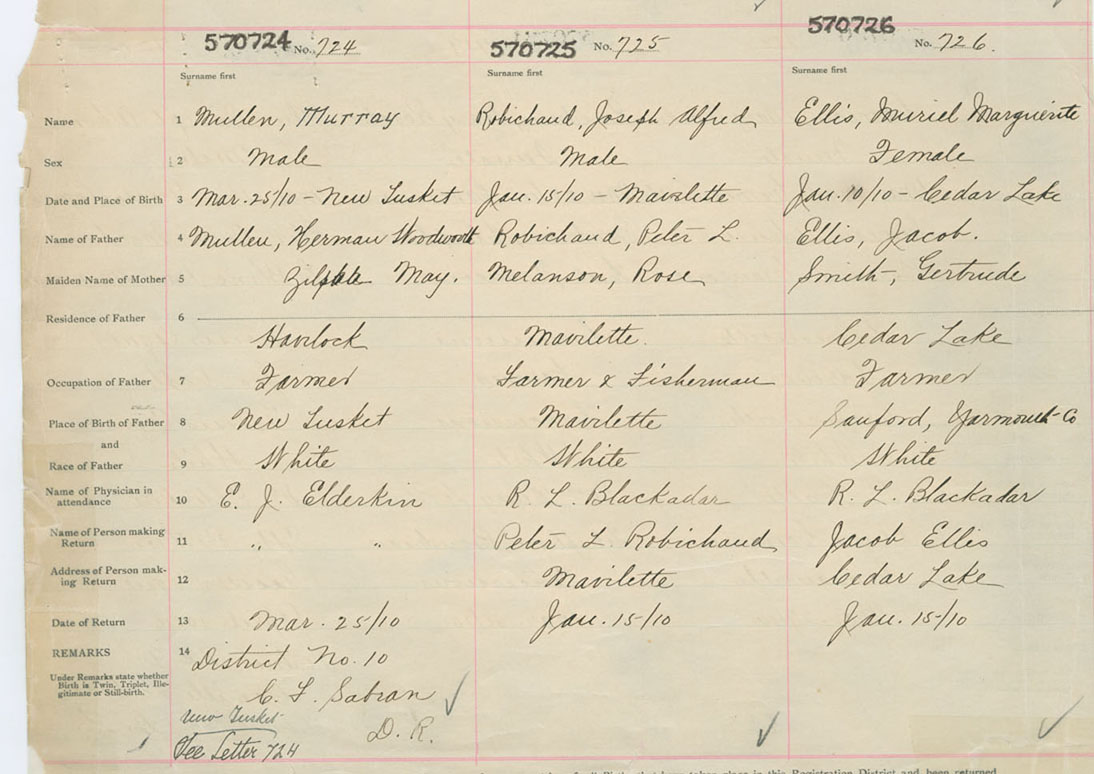 570724 No. 724 570725 No. 725 570726 No. 726.
Surname first Surname first Surname first
Name 1 Mullen, Murray Robichaud, Joseph Alfred Ellis, Muriel Marguerite
Sex 2 Male Male Female
Date and Place of Birth 3 Mar. 25/10 - New Tusket Jan. 15/10 - Mavilette Jan. 10/10 - Cedar Lake
Name of Father 4 Mullen, Herman Woodworth Robichaud, Peter L. Ellis, Jacob.
Maiden Name of Mother 5 Zilpha May. Melanson, Rose Smith, Gertrude
Residence of Father 6
Havlock Mavilette. Cedar Lake
Occupation of Father 7 Farmer Farmer & Fisherman Farmer
Place of Birth of Father 8 New Tusket Mavilette Sanford, Yarmouth Co
and
Race of Father 9 White White White
Name of Physician in
attendance 10 E. J. Elderkin R. L. Blackadar R. L. Blackadar
Name of Person making
Return 11 " " Peter L Robichaud Jacob Ellis
Address of Person mak-
ing Return 12 Mavilette Cedar Lake
Date of Return 13 Mar. 25/10 Jan. 15/10 Jan. 15/10
REMARKS 14 District No. 10
Under Remarks state whether
Birth is Twin, Triplet, Ille-
gitimate or Still-birth.
C. F. Sabean
New Tusket D. R.
See Letter 724
taken place in this Registration District and been returned